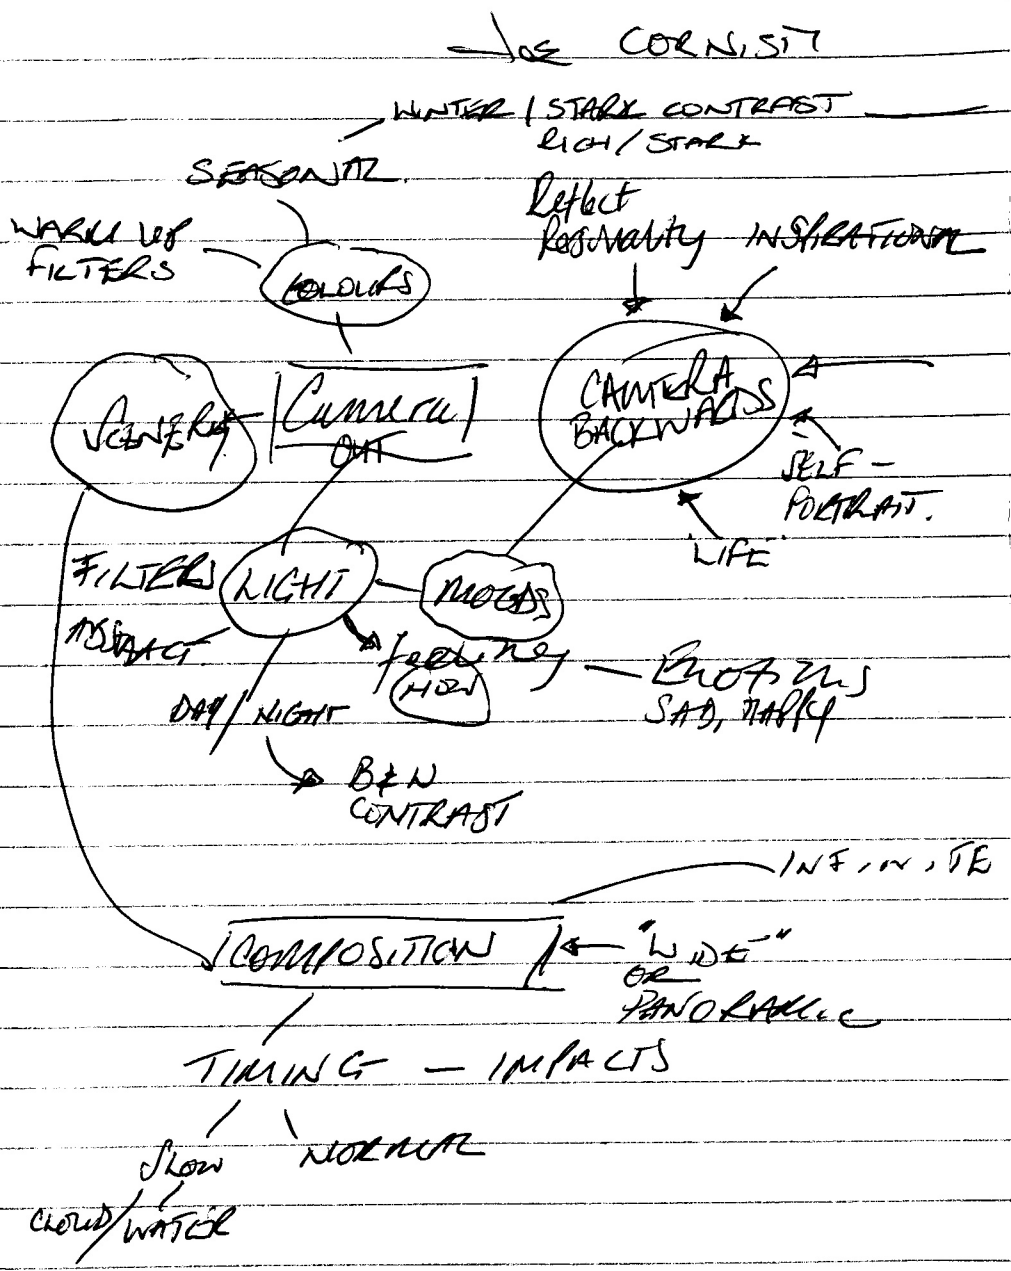 Joe CORNISH
WINTER / STARK CONTRAST
RICH / STARK
SEASONAL.
Reflect
Personality INSPIRATIONAL
WARM UP
FILTERS
COLOURS
CAMERA
BACKWARDS
SCENERY
Camera
OUT
SELF-
PORTRAIT.
"LIFE"
FILTERS
LIGHT
MOODS
ABSTRACT.
feeling
HOW
Emotions
SAD, HAPPY
DAY / NIGHT
B & W
CONTRAST
INFINITE
COMPOSITION
"WIDE"
OR
PANORAMIC
TIMING - IMPACTS
SLOW
NORMAL
CLOUD / WATER